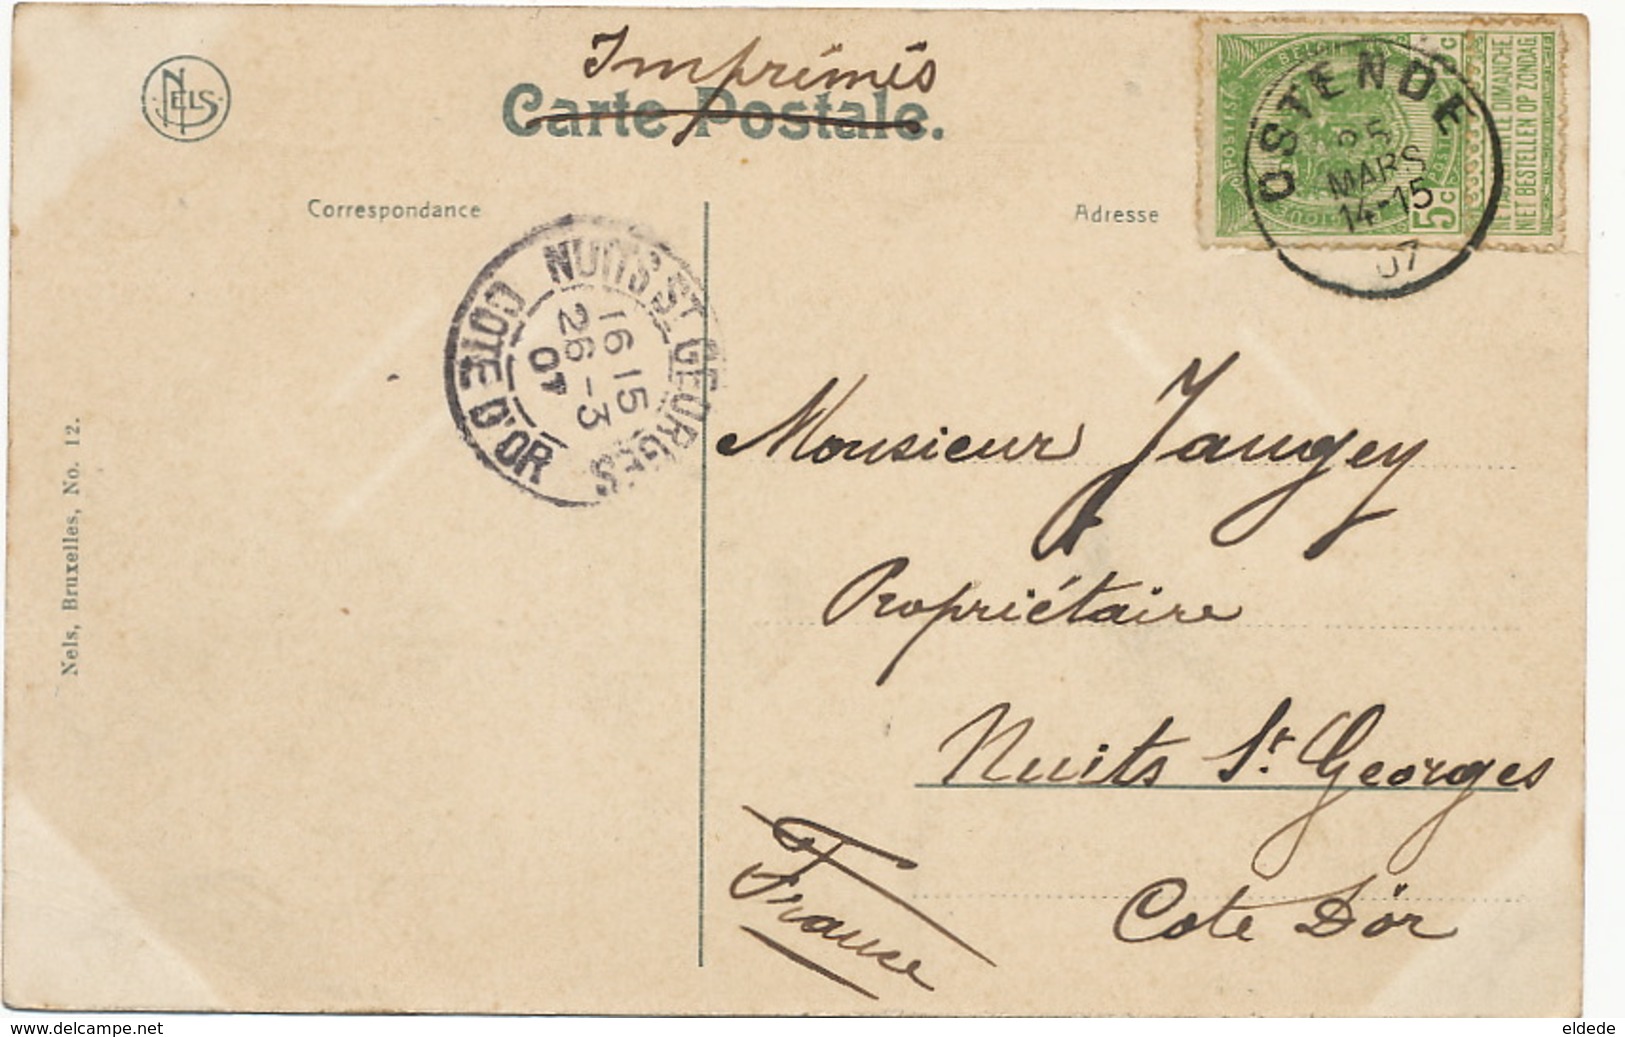 Imprimés
NELS
Carte Postale.
Correspondance
Adresse
OSTENDE
25
MARS
14-15
07
POSTES
BELGIQUE
5 C
5 C
NE PAS LIVRER LE DIMANCHE
NIET BESTELLEN OP ZONDAG
NUITS ST GEORGES
16 15
26 - 3
07
COTE D'OR
Nels, Bruxelles, No. 12.
Monsieur Jaugey
Propriétaire
Nuits St. Georges
Cote D'or
France
www.delcampe.net
eldede